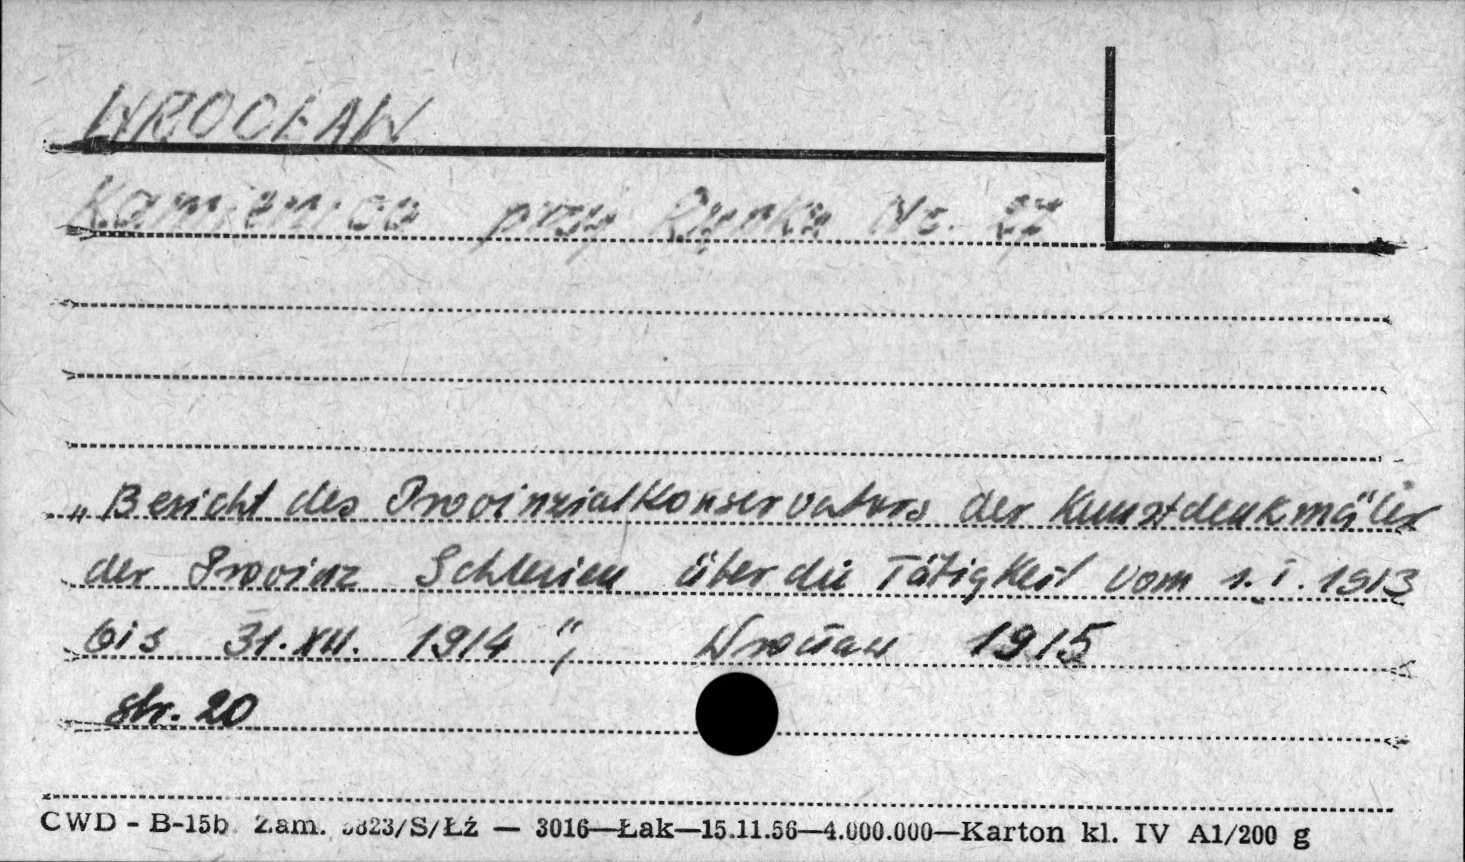 WROCŁAW
Kamienica przy Rynku Nr. 27
„Bericht des Provinzialkonservators der Kunstdenkmäler
der Provinz Schlesien über die Tätigkeit vom 1. I. 1913
bis 31. XII. 1914", Wrocław 1915
str. 20
CWD - B-15b Zam. 3823/S/Łź — 3016—Łak—15.11.56—4.000.000—Karton kl. IV A1/200 g